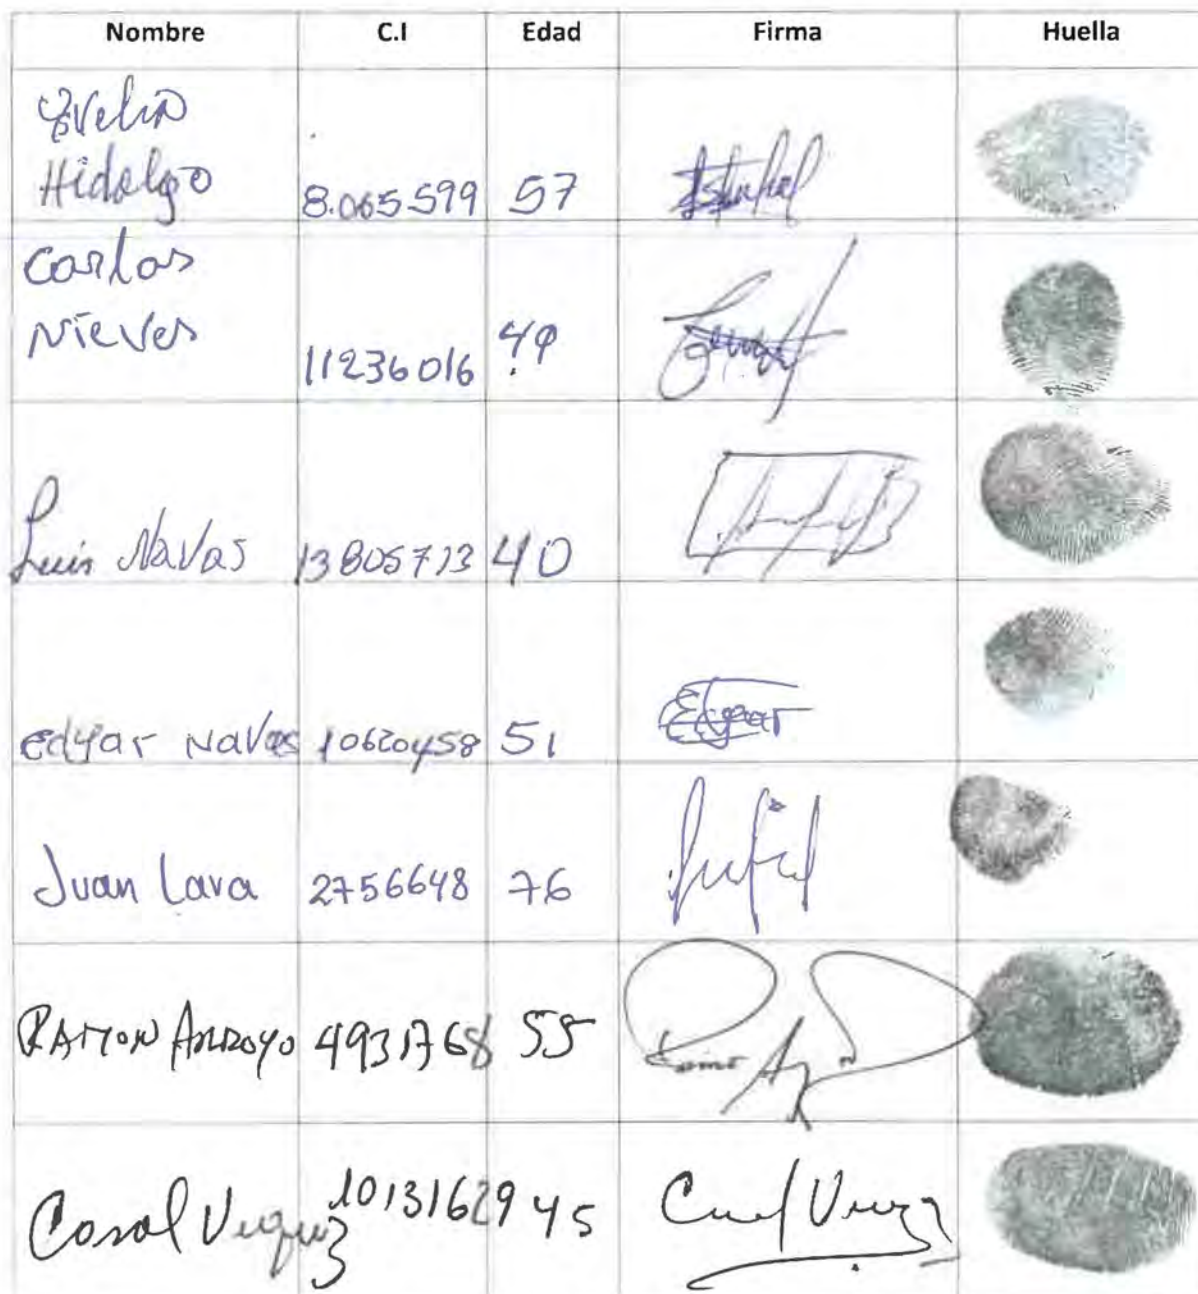 Nombre C.I Edad Firma Huella
Evelia
Hidalgo 8.065.599 57
Carlos
Nieves 11236016
Luis Navas 13805713 40
Edgar Navas 10620458 51 Edgar
Juan Lava 2756648 76
RAMON ARROYO 4931768 55
10131629 45